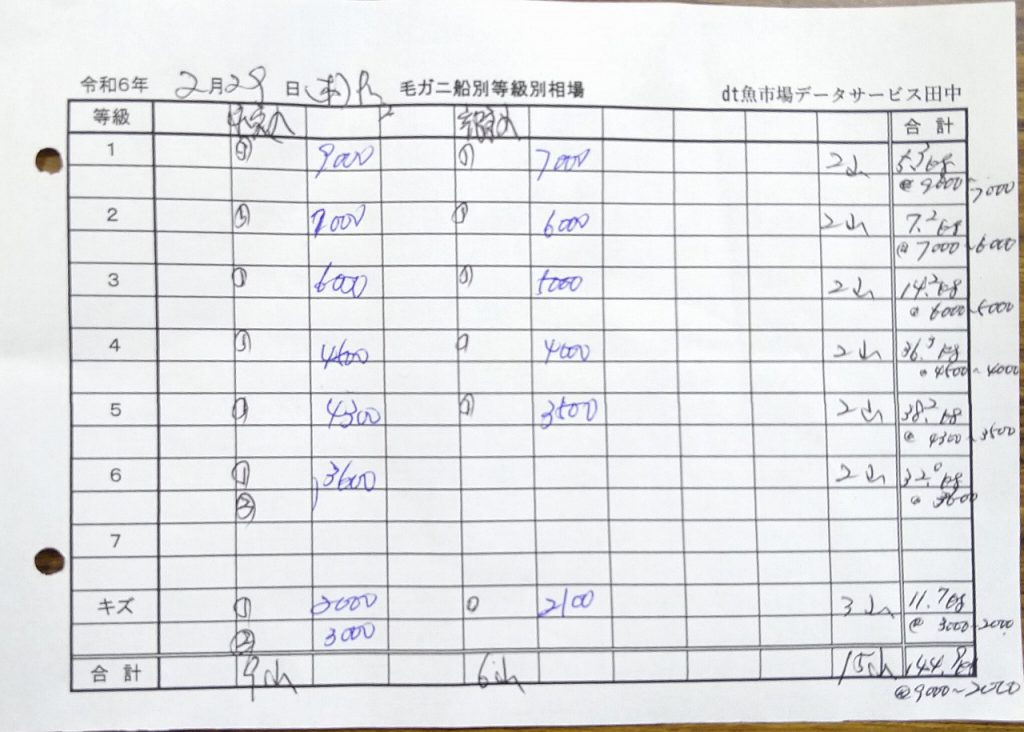 令和6年 2月29日(木) 毛ガニ船別等級別相場 dt魚市場データサービス田中
等級 合計
1 ① 9000 ① 7000 2山 5.3kg
@ 9000~7000
2 ① 7000 ① 6000 2山 7.2kg
@ 7000~6000
3 ① 6000 ① 5000 2山 14.2kg
@ 6000~5000
4 ① 4500 ① 4000 2山 36.3kg
@ 4500~4000
5 ① 4300 ① 3500 2山 38.2kg
@ 4300~3500
6 ① 3600 2山 32.0kg
② @ 3600
7
キズ ① 2000 ① 2100 3山 11.7kg
② 3000 @ 3000~2000
合計 9山 6山 15山 144.9kg
@9000~2000